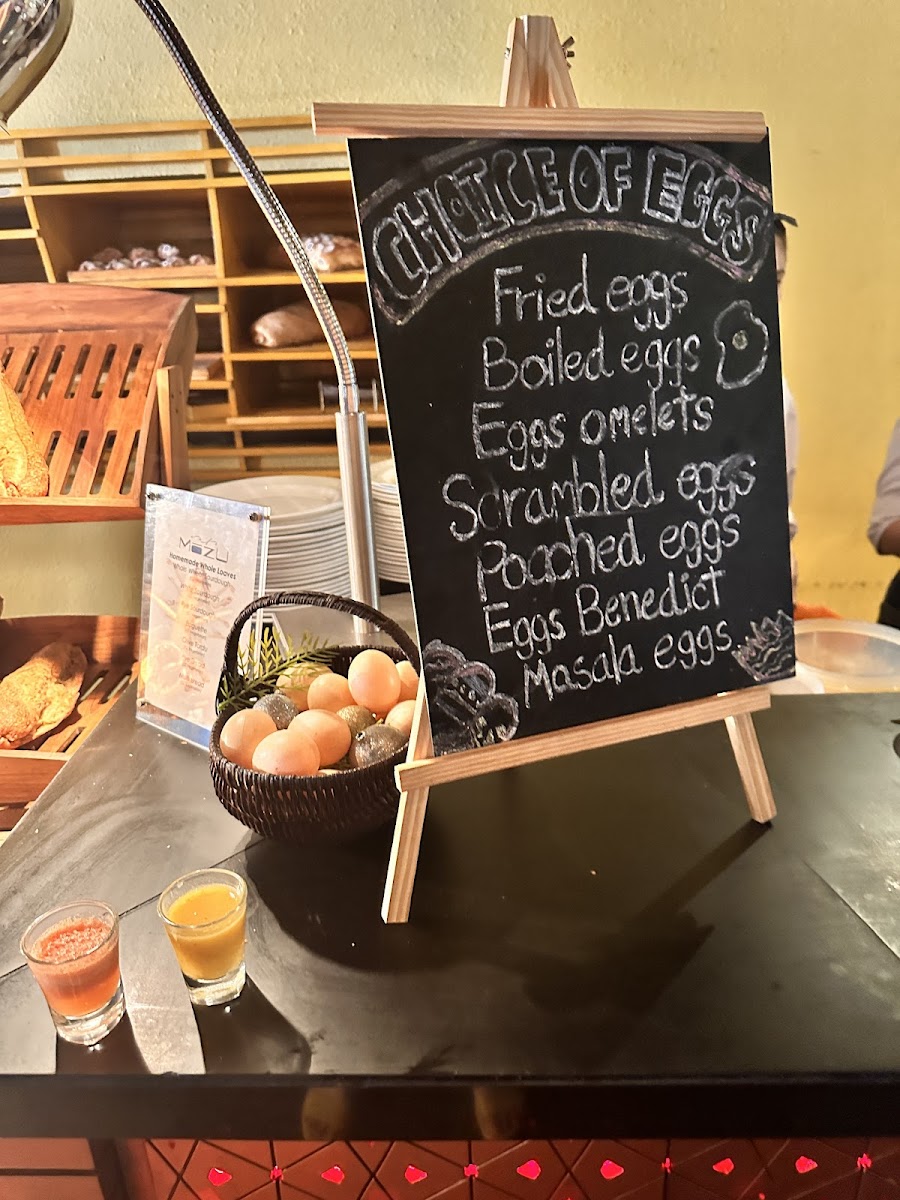 CHOICE OF EGGS
Fried eggs
Boiled eggs
Eggs omelets
Scrambled eggs
Poached eggs
Eggs Benedict
Masala eggs
MAZU
Homemade Whole Loaves